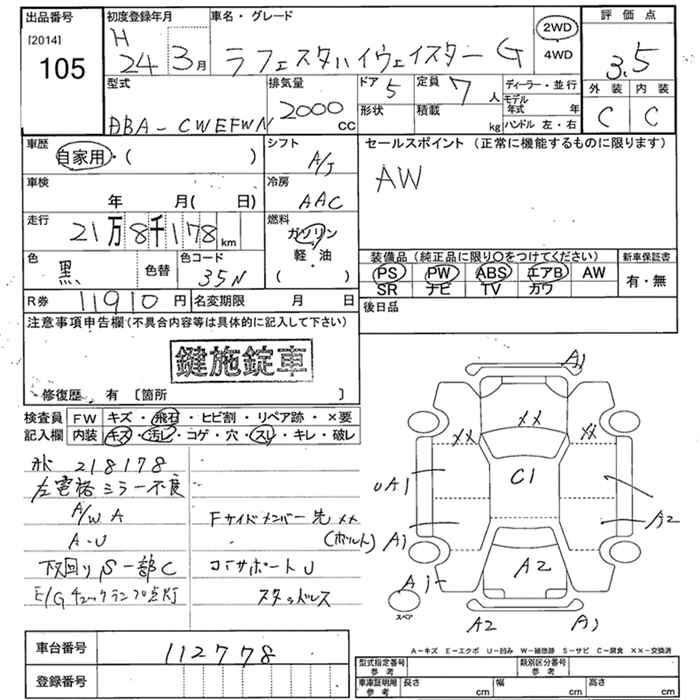 出品番号
[2014]
105
初度登録年月
H
24 3月
車名・グレード
ラフェスタハイウェイスター G
2WD
4WD
評価点
3.5
外装 内装
C C
型式
DBA-CWEFWN
排気量
2000 cc
ドア 5
定員 7 人
形状
積載 kg
ディーラー・並行
モデル年式 年
ハンドル 左・右
車歴
自家用・( )
シフト
A/T
セールスポイント (正常に機能するものに限ります)
AW
車検
年 月( 日)
冷房
AAC
走行
21万8千178km
燃料
ガソリン
軽・油
( )
色
黒
色替
色コード
35N
装備品(純正品に限り○をつけてください)
新車保証書
PS PW ABS エアB AW
SR ナビ TV カワ
有・無
R券 11910円
名変期限 月 日
後日品
注意事項申告欄(不具合内容等は具体的に記入して下さい)
鍵施錠車
修復歴 有 〔箇所 〕
検査員
記入欄
FW キズ・飛石・ヒビ割・リペア跡・×要
内装 キズ・汚レ・コゲ・穴・スレ・キレ・破レ
218178
左電格ミラー不良
A/W A
A-U
下回りS一部C
E/Gチェックランプ点灯
Fサイドメンバー先 xx
(ボルト)
コアサポートU
スタッドレス
A1
xx
xx
xx
C1
UA1
A1
A2
A2
A1
A2
A1
スペア
A-キズ E-エクボ U-凹み W-補修跡 S-サビ C-腐食 XX-交換済
車台番号
112778
登録番号
型式指定番号
参考
類別区分番号
参考
車庫証明用
参考
長さ cm
幅 cm
高さ cm